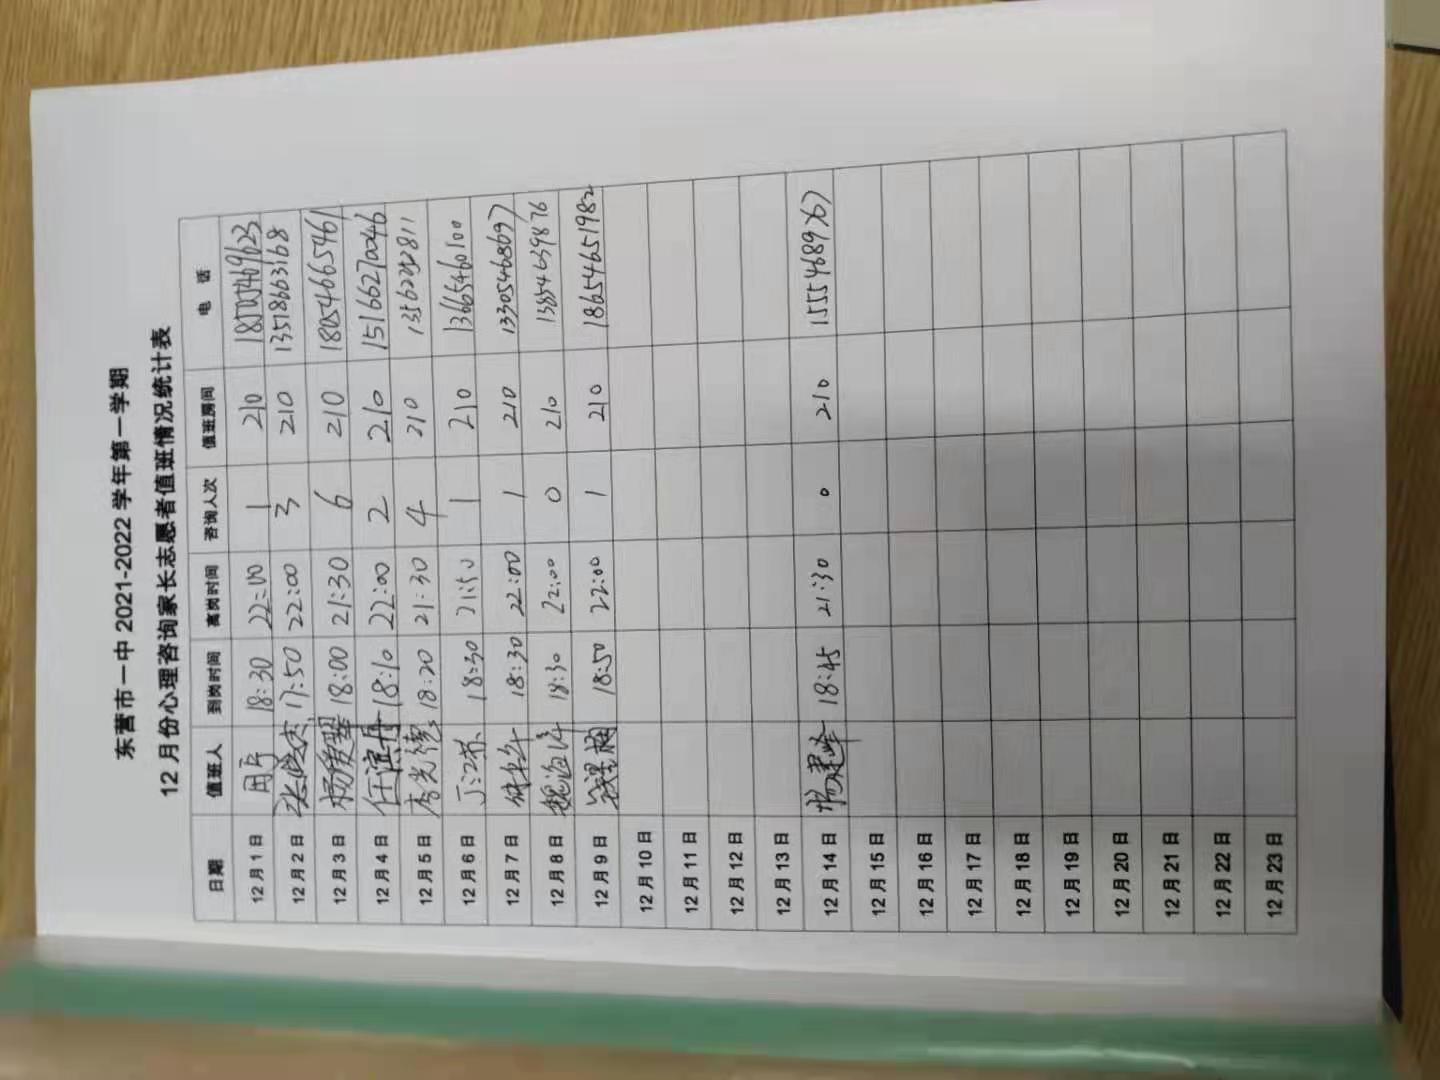 东营市一中 2021-2022 学年第一学期
12 月份心理咨询家长志愿者值班情况统计表
日期 值班人 到岗时间 离岗时间 咨询人次 值班房间 电 话
12月1日 18:30 22:00 1 210
12月2日 17:50 22:00 3 210 13518663168
12月3日 18:00 21:30 6 210 18054665461
12月4日 任滨丹 18:10 22:00 2 210 15166270046
12月5日 李光德 18:20 21:30 4 210
12月6日 丁江苏 18:30 21:50 1 210 13665460100
12月7日 18:30 22:00 1 210 13305468697
12月8日 魏海洋 18:30 22:00 0 210 13854639876
12月9日 18:50 22:00 1 210 18654651982
12月10日
12月11日
12月12日
12月13日
12月14日 杨建峰 18:45 21:30 0 210
12月15日
12月16日
12月17日
12月18日
12月19日
12月20日
12月21日
12月22日
12月23日